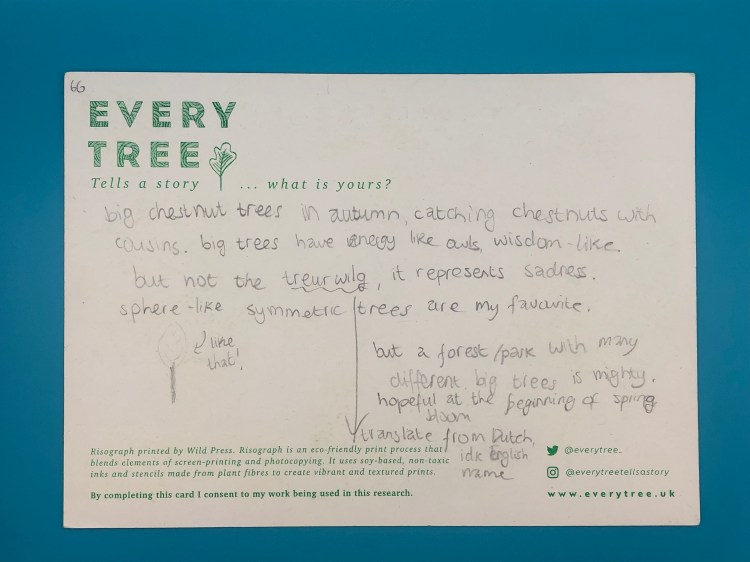 66
EVERY
TREE
Tells a story ... what is yours?
big chestnut trees in autumn, catching chestnuts with
cousins. big trees have energy like owls, wisdom-like.
but not the treurwilg, it represents sadness.
sphere-like symmetric trees are my favourite.
like
that!
but a forest/park with many
different big trees is mighty.
hopeful at the beginning of spring
bloom
translate from Dutch,
idk English
name
Risograph printed by Wild Press. Risograph is an eco-friendly print process that
blends elements of screen-printing and photocopying. It uses soy-based, non-toxic
inks and stencils made from plant fibres to create vibrant and textured prints.
By completing this card I consent to my work being used in this research.
@everytree_
@everytreetellsastory
www.everytree.uk